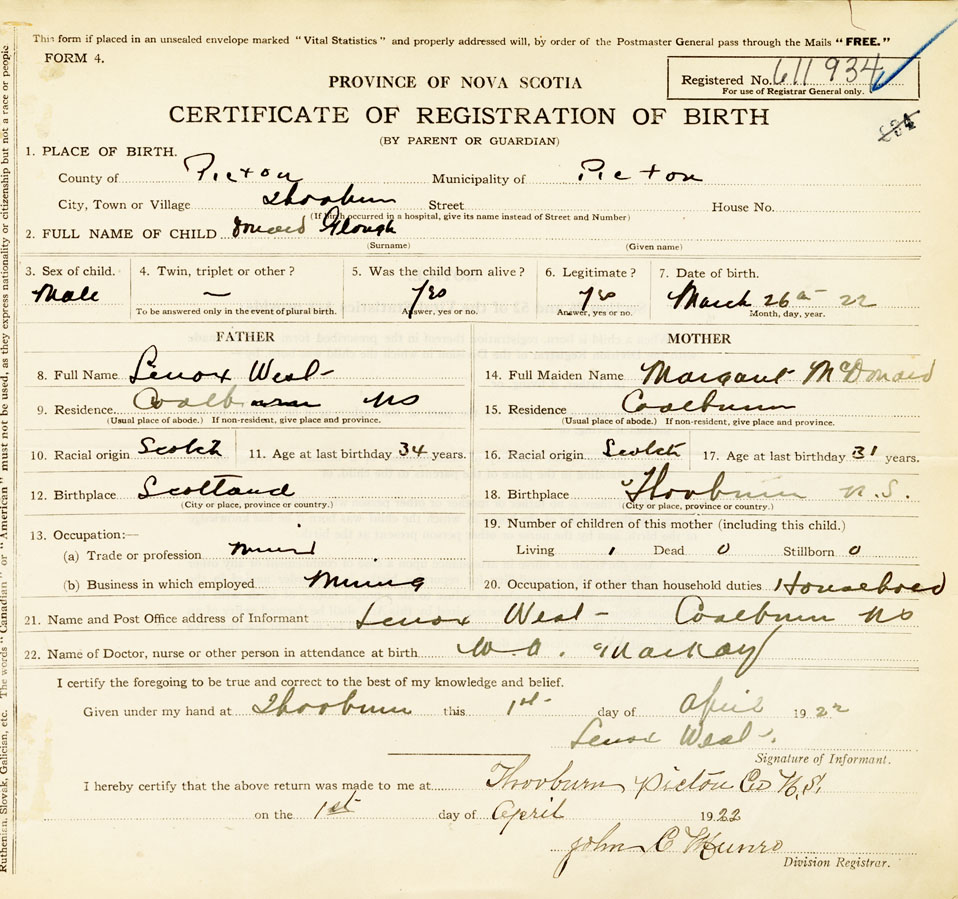 This form if placed in an unsealed envelope marked "Vital Statistics" and properly addressed will, by order of the Postmaster General pass through the Mails "FREE."
FORM 4.
Registered No. 611934
For use of Registrar General only.
PROVINCE OF NOVA SCOTIA
CERTIFICATE OF REGISTRATION OF BIRTH
(BY PARENT OR GUARDIAN)
1. PLACE OF BIRTH.
County of Picton Municipality of Picton
City, Town or Village Thorburn Street House No.
(If birth occurred in a hospital, give its name instead of Street and Number)
2. FULL NAME OF CHILD
(Surname) (Given name)
3. Sex of child. 4. Twin, triplet or other? 5. Was the child born alive? 6. Legitimate? 7. Date of birth.
Male — yes yes March 26 22
To be answered only in the event of plural birth. Answer, yes or no. Answer, yes or no. Month, day, year.
FATHER MOTHER
8. Full Name Lenox West 14. Full Maiden Name Margaret McDonald
9. Residence Coalburn NS 15. Residence Coalburn
(Usual place of abode.) If non-resident, give place and province. (Usual place of abode.) If non-resident, give place and province.
10. Racial origin Scotch 11. Age at last birthday 34 years. 16. Racial origin Scotch 17. Age at last birthday 31 years.
12. Birthplace Scotland 18. Birthplace Thorburn N.S.
(City or place, province or country.) (City or place, province or country.)
13. Occupation:— 19. Number of children of this mother (including this child.)
(a) Trade or profession Living 1 Dead 0 Stillborn 0
(b) Business in which employed Mining 20. Occupation, if other than household duties
21. Name and Post Office address of Informant Lenox West Coalburn NS
22. Name of Doctor, nurse or other person in attendance at birth MacKay
I certify the foregoing to be true and correct to the best of my knowledge and belief.
Given under my hand at Thorburn this 1st day of April 1922
Lenox West
Signature of Informant.
I hereby certify that the above return was made to me at Thorburn Picton Co N.S.
on the 1st day of April 1922
John C Munro
Division Registrar.
Ruthenian, Slovak, Galician, etc. The words "Canadian" or "American" must not be used, as they express nationality or citizenship but not a race or people